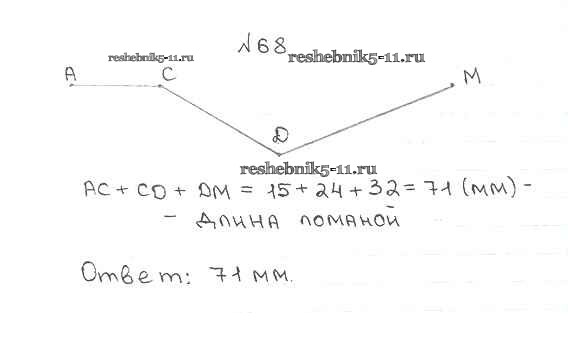 №68
reshebnik5-11.ru
reshebnik5-11.ru
A C M
D
reshebnik5-11.ru
AC + CD + DM = 15 + 24 + 32 = 71 (мм) -
- длина ломаной
Ответ: 71 мм.